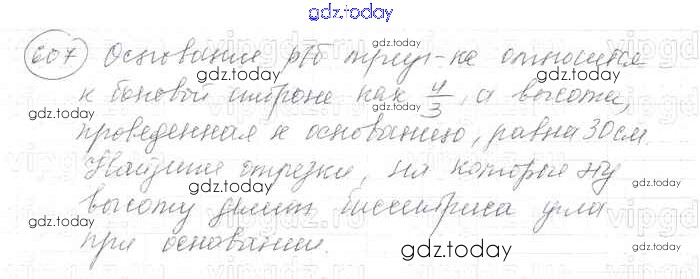 gdz.today
607 Основание р/б треуг-ка относится
gdz.today
gdz.today
к боковой стороне как 4/3, а высота,
gdz.today
проведенная к основанию, равна 30 см.
gdz.today
Найдите отрезки, на которые эту
gdz.today
высоту делит биссектриса угла
gdz.today
при основании.
gdz.today